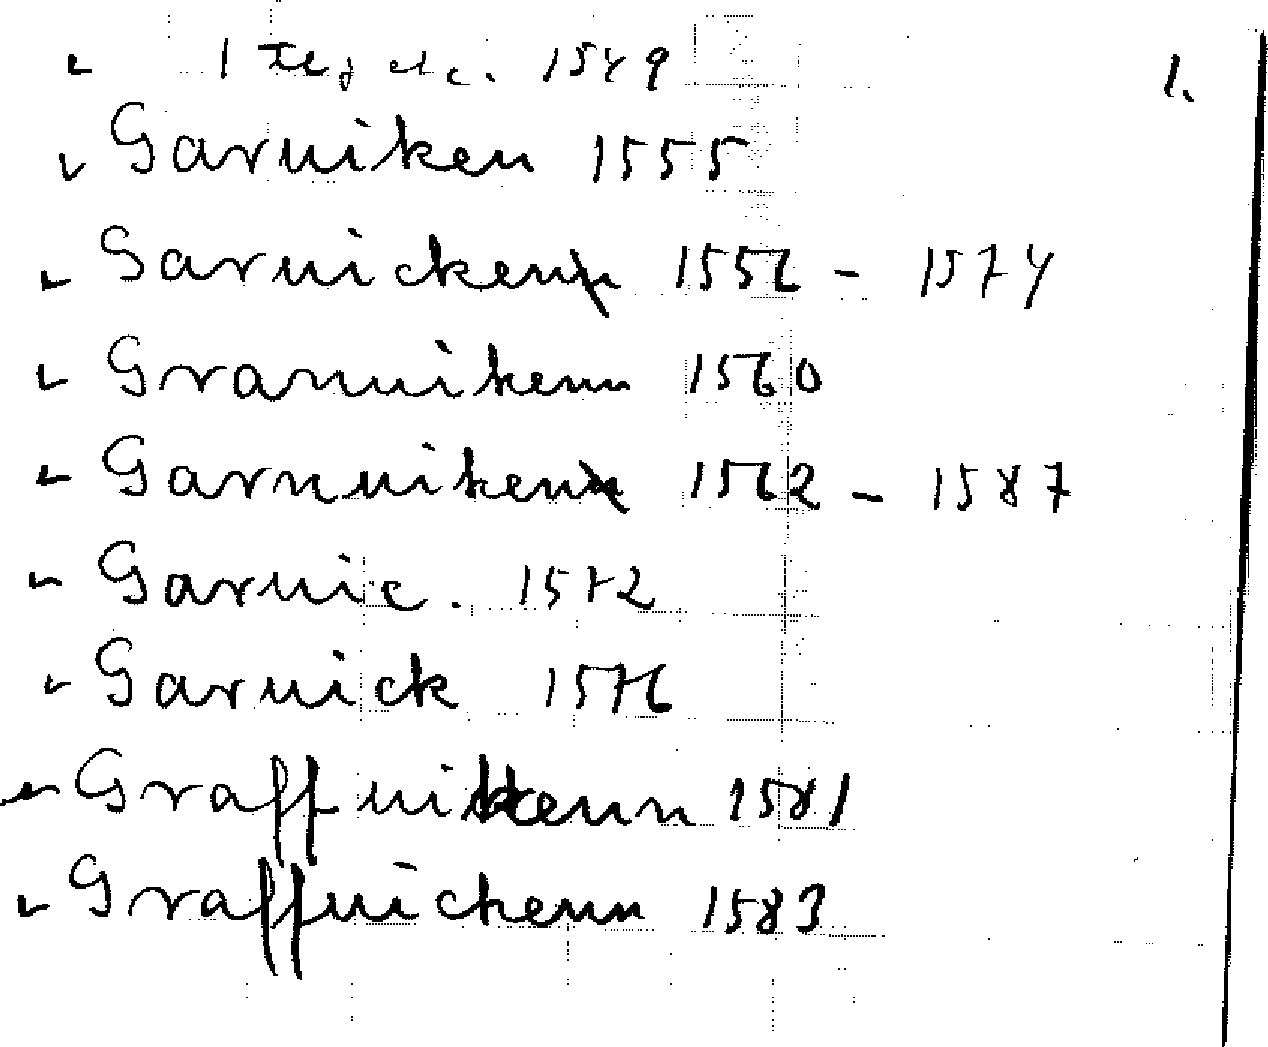 1549 1.
Garniken 1555
Garnicken 1552 - 1574
Grannikenn 1560
Garnniken 1562 - 1587
Garnic. 1572
Garnick 1576
Graffnikenn 1581
Graffnickenn 1583